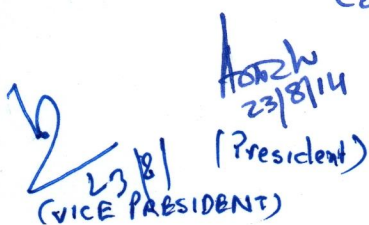 23/8/14
(President)
23/8/
(VICE PRESIDENT)